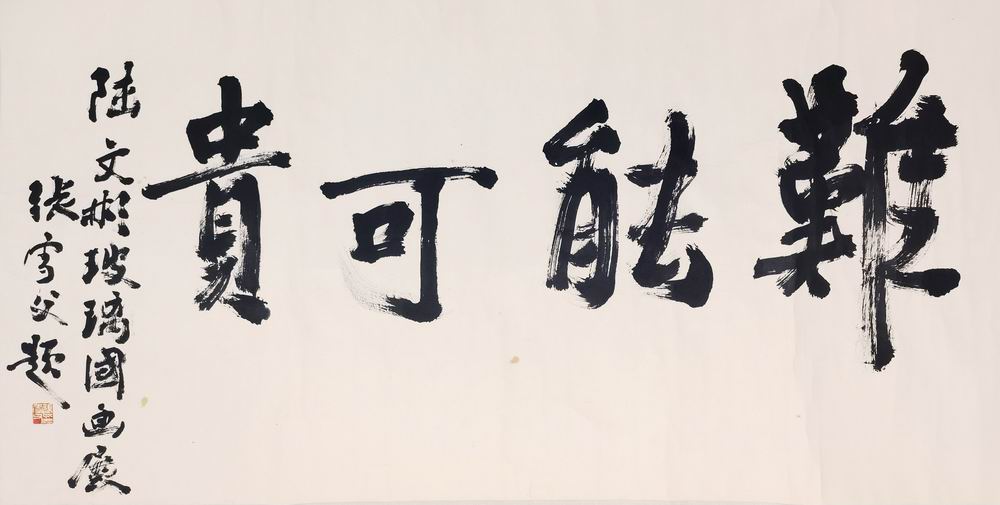 難能可貴
陆文彬玻璃國画展
張雪父题